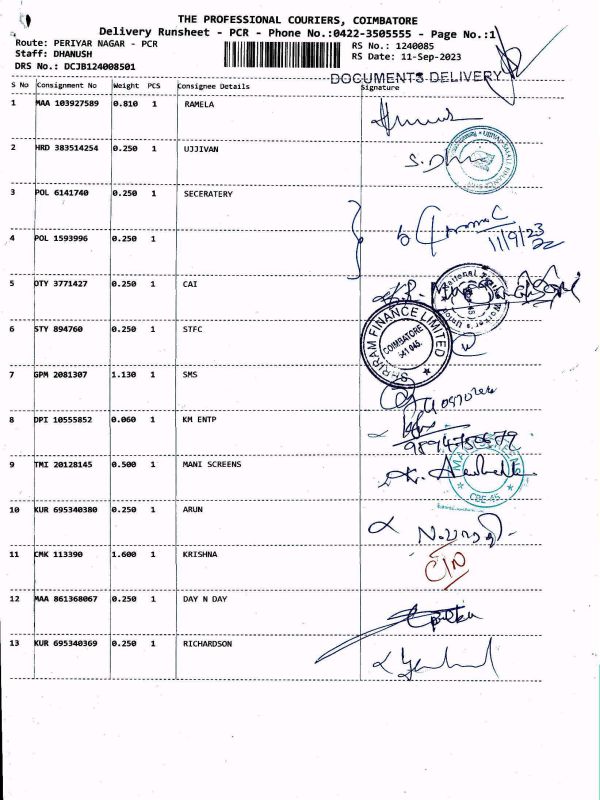 THE PROFESSIONAL COURIERS, COIMBATORE
Delivery Runsheet - PCR - Phone No.:0422-3505555 - Page No.:1
Route: PERIYAR NAGAR - PCR
RS No.: 1240085
Staff: DHANUSH
RS Date: 11-Sep-2023
DRS No.: DCJB124008501
DOCUMENTS DELIVERY
S No Consignment No Weight PCS Consignee Details Signature
1 MAA 103927589 0.810 1 RAMELA
2 HRD 383514254 0.250 1 UJJIVAN
S.
3 POL 6141740 0.250 1 SECERATERY
4 POL 1593996 0.250 1
11/9/23
5 OTY 3771427 0.250 1 CAI
6 STY 894760 0.250 1 STFC
SHRIRAM FINANCE LIMITED
COIMBATORE
641 045.
7 GPM 2081307 1.130 1 SMS
8 DPI 10555852 0.060 1 KM ENTP
9 TMI 20128145 0.500 1 MANI SCREENS
CBE-45
10 KUR 695340380 0.250 1 ARUN
11 CMK 113390 1.600 1 KRISHNA
12 MAA 861368067 0.250 1 DAY N DAY
13 KUR 695340369 0.250 1 RICHARDSON